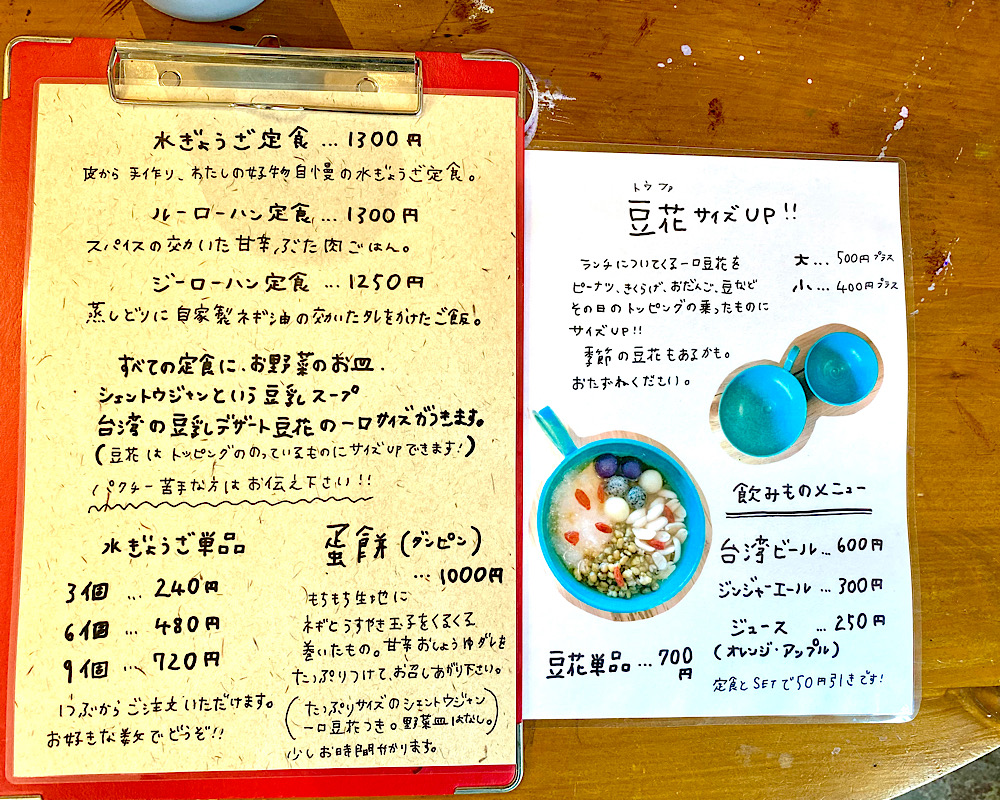 水ぎょうざ定食 … 1300円
皮から手作り、わたしの好物自慢の水ぎょうざ定食。
ルーローハン定食 … 1300円
スパイスの効いた甘辛ぶた肉ごはん。
ジーローハン定食 … 1250円
蒸しどりに自家製ネギ油の効いたタレをかけたご飯。
すべての定食に、お野菜のお皿、
シェントウジャンという豆乳スープ
台湾の豆乳デザート豆花の一口サイズがつきます。
(豆花はトッピングののっているものにサイズUPできます!)
パクチー苦手な方はお伝え下さい!!
水ぎょうざ単品
3個 … 240円
6個 … 480円
9個 … 720円
1つぶからご注文いただけます。
お好きな数でどうぞ!!
蛋餅(ダンピン)
… 1000円
もちもち生地に
ネギとうすやき玉子をくるくる
巻いたもの。甘辛おしょうゆダレを
たっぷりつけて、お召しあがり下さい。
(たっぷりサイズのシェントウジャン
一口豆花つき。野菜皿はなし。)
少しお時間かかります。
トウファ
豆花サイズUP!!
ランチについてくる一口豆花を
ピーナツ、きくらげ、おだんご、豆など
その日のトッピングの乗ったものに
サイズUP!!
季節の豆花もあるかも。
おたずねください。
大 … 500円プラス
小 … 400円プラス
飲みものメニュー
台湾ビール … 600円
ジンジャーエール … 300円
ジュース … 250円
(オレンジ・アップル)
定食とSETで50円引きです!
豆花単品 … 700円